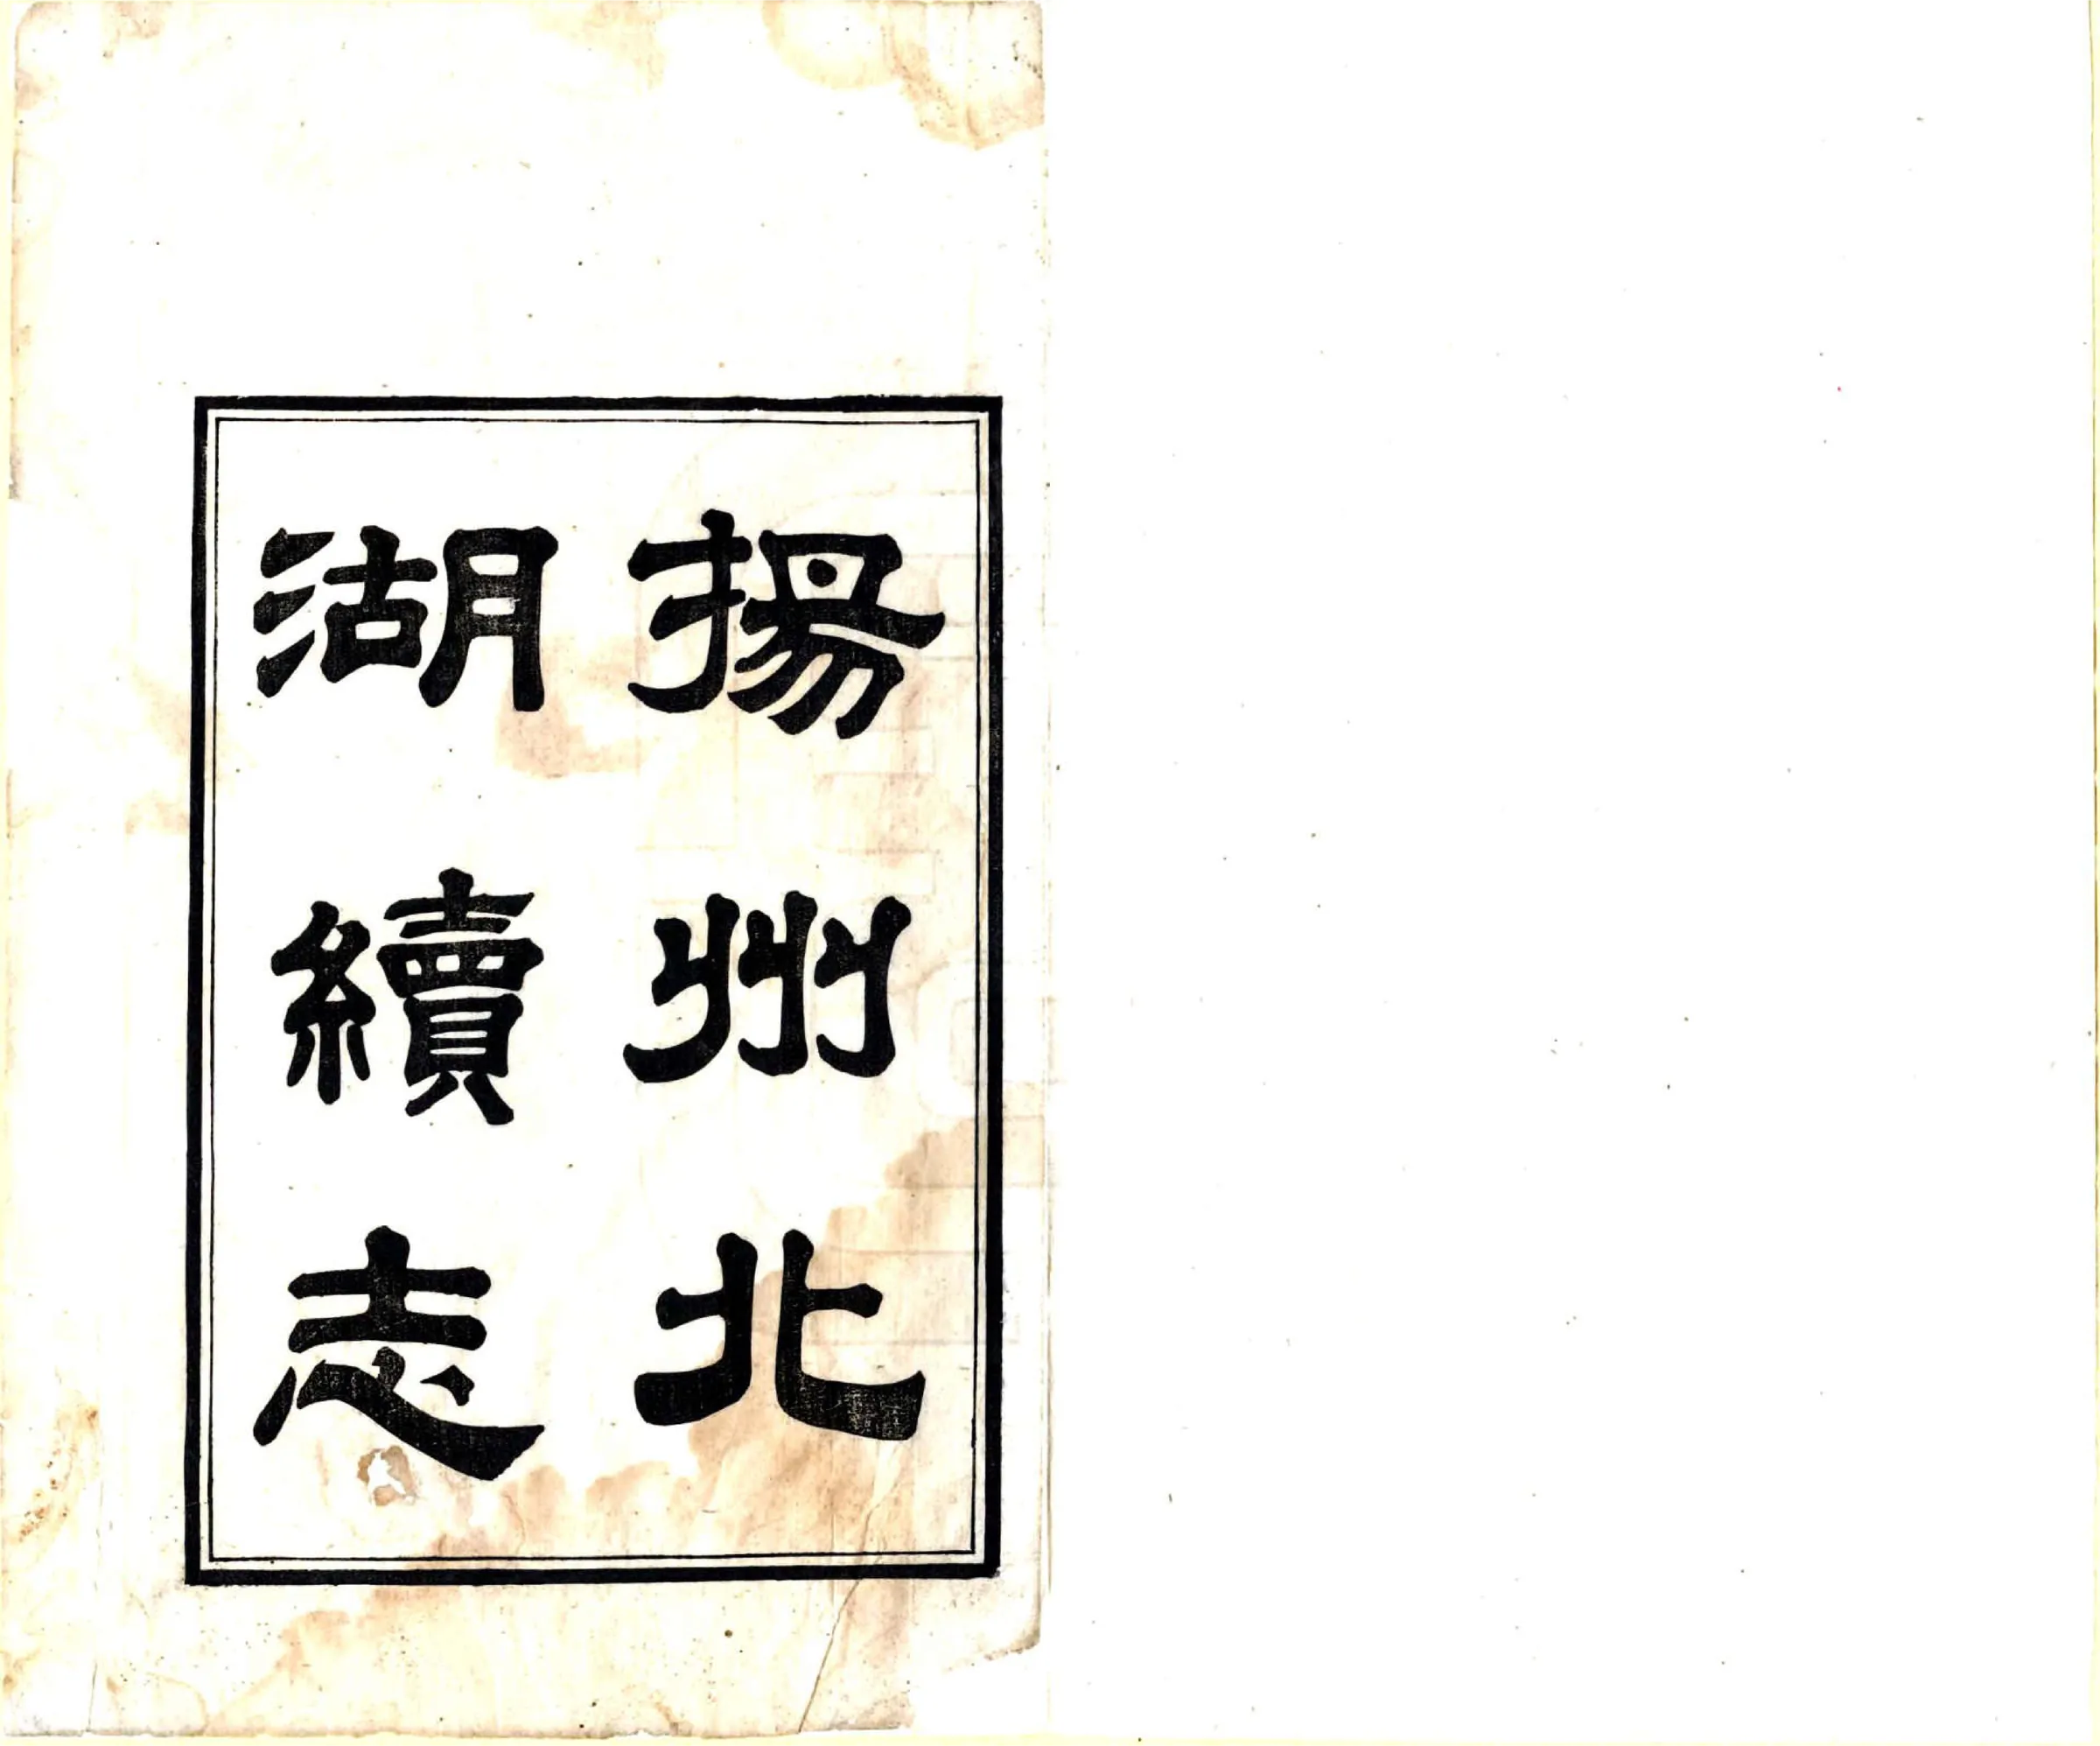 揚州北
湖續志